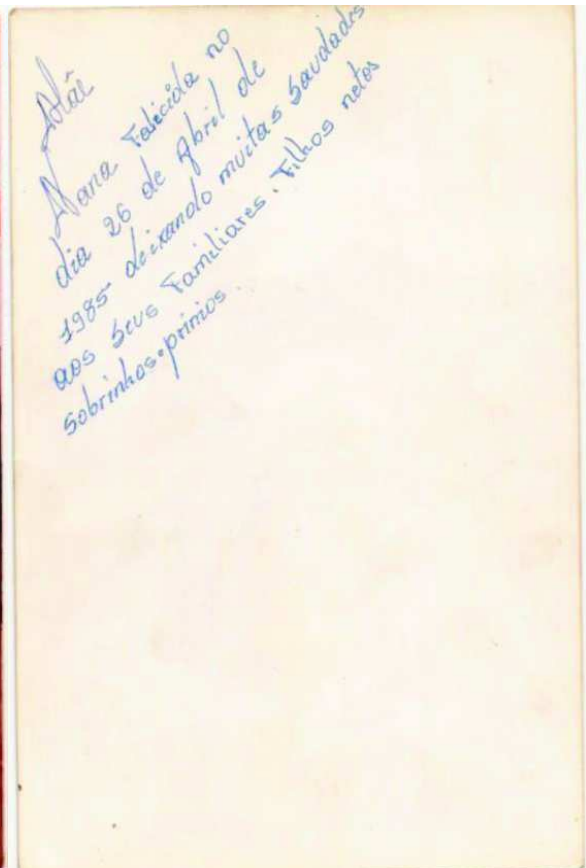 Mãe
Nana Falecida no
dia 26 de Abril de
1985 deixando muitas saudades
aos seus Familiares. Filhos netos
sobrinhos e primos.